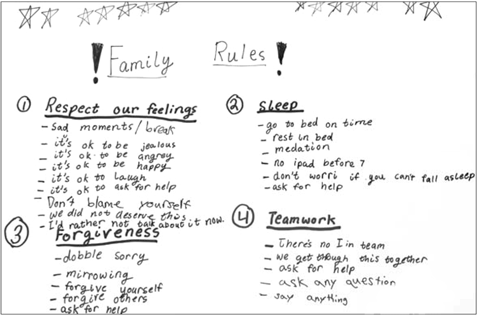 ! Family Rules !
① Respect our feelings
- Sad moments/break
- it's ok to be jealous
- it's ok to be angray
- it's ok to be happy
- it's ok to laugh
- it's ok to ask for help
- Don't blame yourself
- we did not deserve this.
- I'd rather not talk about it now.
② Sleep
- go to bed on time
- rest in bed
- medation
- no ipad before 7
- don't worri if you can't fall asleep
- ask for help
③ Forgiveness
- dobble sorry
- mirrowing
- forgive yourself
- forgive others
- ask for help
④ Teamwork
- There's no I in team
- we get through this together
- ask for help
- ask any question
- say anything